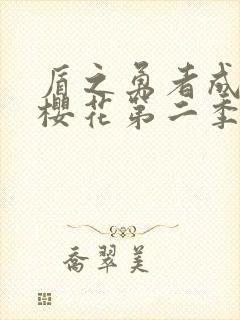 盾之勇者成
樱花第二季
喬翠美